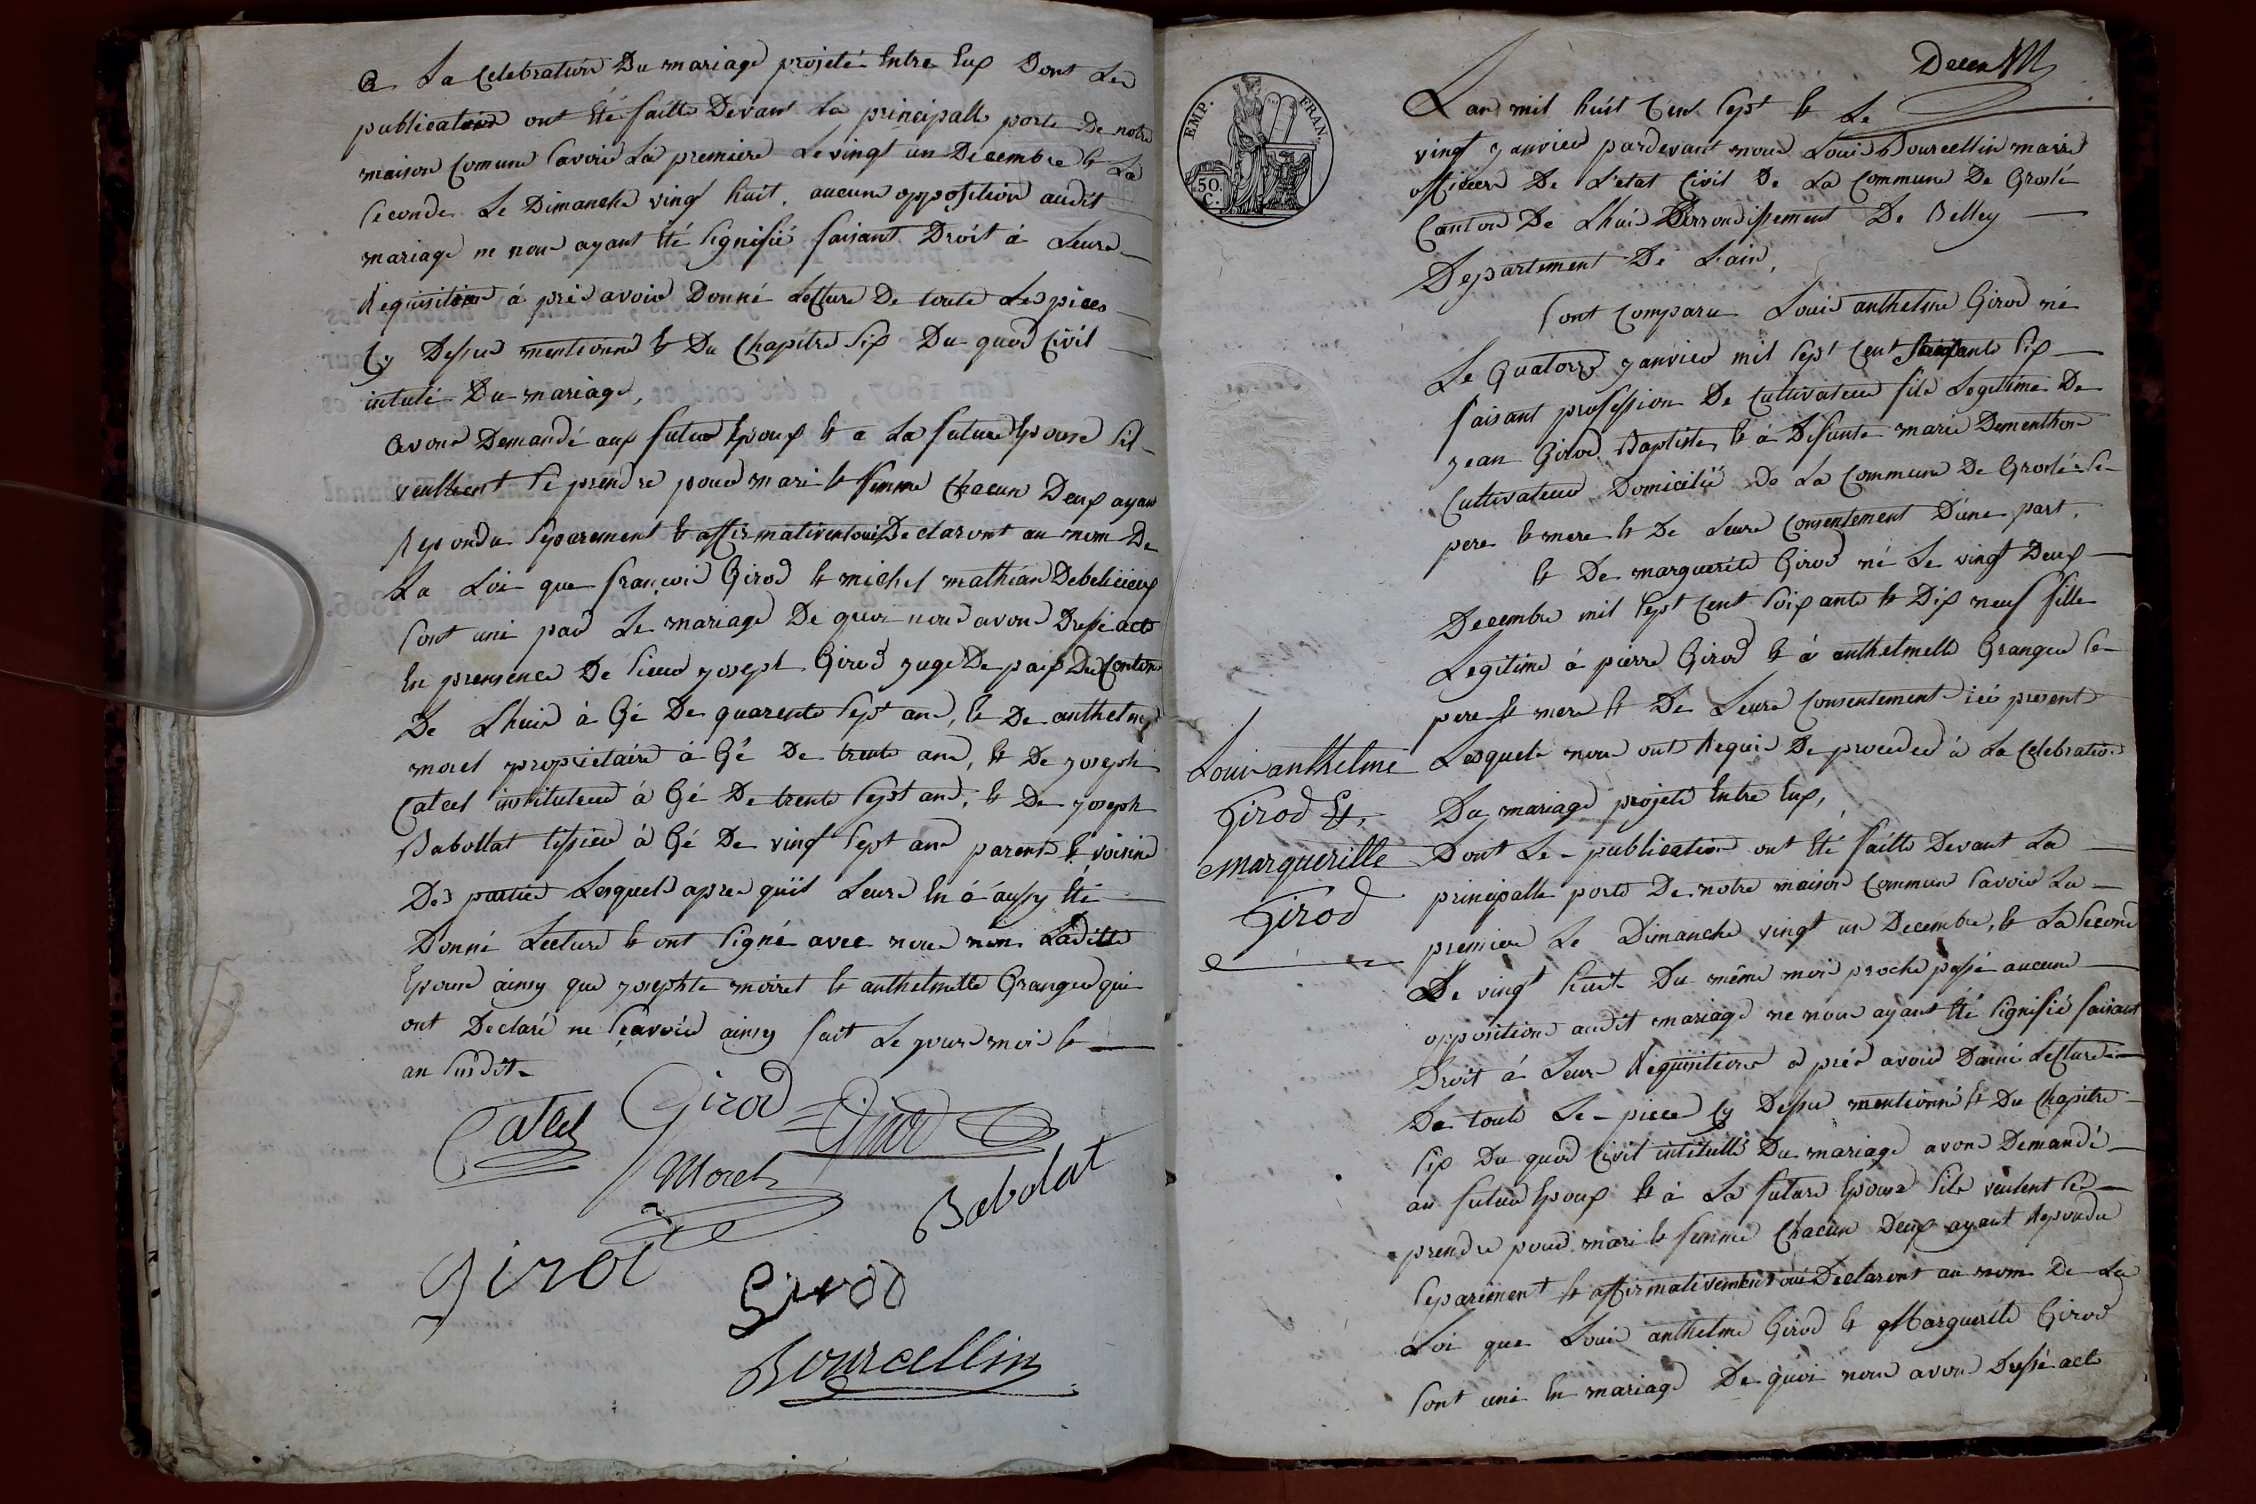 a La Celebration Du mariage projeté Entre Eux Dont Les
publication ont Eté faitte Devant La principalle porte De notre
maison Comune Savoir La premiere Le vingt un Decembre Et La
Seconde Le Dimanche vingt huit, aucune opposition audit
mariage ne nous ayant Eté Signifié faisant Droit á Leurs
Requisition á prés avoir Donné Lecture De toute Les pieces
Cy Dessus mentionné Et Du Chapitre Six Du quod Civil
intulé Du mariage,
avons Demandé aux futur Epoux Et a La future Epouse Sil
veullent Se prendre pour mari Et femme Chacun Deux ayant
Repondu Separement Et affirmativem oui Declaront au nom De
La Loi que françois Girod Et michel mathian Debelicieux
Sont uni par Le mariage De quoi nous avons Dressé acte
En presence De Sieur joseph Girod juge De paix Du Conton
De Lhuis á Gé De quarente Sept ans, Et De anthelme
morel propriétaire á Gé De trente ans, Et De joseph
Catel instituteur á Gé De trente Sept ans, Et De joseph
Babollat tissieu á Gé De vingt Sept ans parents Et voisins
Des parties Lesquels apres quil Leurs En á áussy Eté
Donné Lecture Et ont Signé avec nous non Laditte
Epouse ainsy que josephte moiret Et anthelmette Granger qui
ont Declaré ne Sçavoir ainsy fait Le jours mois Et
an Susdit
Catel Girod Girod
Morel
Babolat
Girod
Girod
Bourcellin
EMP. FRAN.
50. C.
Lan mil huit Cent Sept Et Le
vingt janvier pardevant nous Louis Bourcellin maire
officier De L'etat Civil De La Commune De Groslé
Canton De Lhuis Arrondissement De Belley
Departement De L'ain,
Sont Comparu Louis anthelme Girod né
Le Quatorze janvier mil Sept Cent Six
faisant profession De Cultivateur fils Legitime De
jean Girod Baptiste Et á Defunte marie Dementhon
Cultivateur Domicilié De La Commune De Groslé Se
pere Et mere Et De Leurs Consentement D'une part,
Et De marguerite Girod né Le vingt Deux
Decembre mil Sept Cent Soixante Et Dix neuf fille
Legitime á pierre Girod Et á anthelmette Granger Se
pere Et mere Et De Leurs Consentement ici present
Lesquels nous ont Requis De proceder á La Celebration
Du mariage projeté Entre Eux,
Dont Le publication ont Eté faitte Devant La
principalle porte De notre maison Commun Savoir La
premiere Le Dimanche vingt un Decembre, Et La Second
De vingt huit Du même mois proche passé aucune
opposition audit mariage ne nous ayant Eté Signifié faisant
Droit á Leurs Requisitions a prés avoir Donné Lecture
De toute Le piece Cy Dessus mentionné Et Du Chapitre
Six Du quod Civil intitullé Du mariage avons Demandé
au futur Epoux Et á La future Epouse Sils veulent Se
prendre pour mari Et femme Chacun Deux ayant Repondu
Separément Et affirmativement oui Declaront au nom De La
Loi que Louis anthelme Girod Et Marguerite Girod
Sont uni En mariage De quoi nous avons Dressé acte
Louis anthelme
Girod Et,
margueritte
Girod